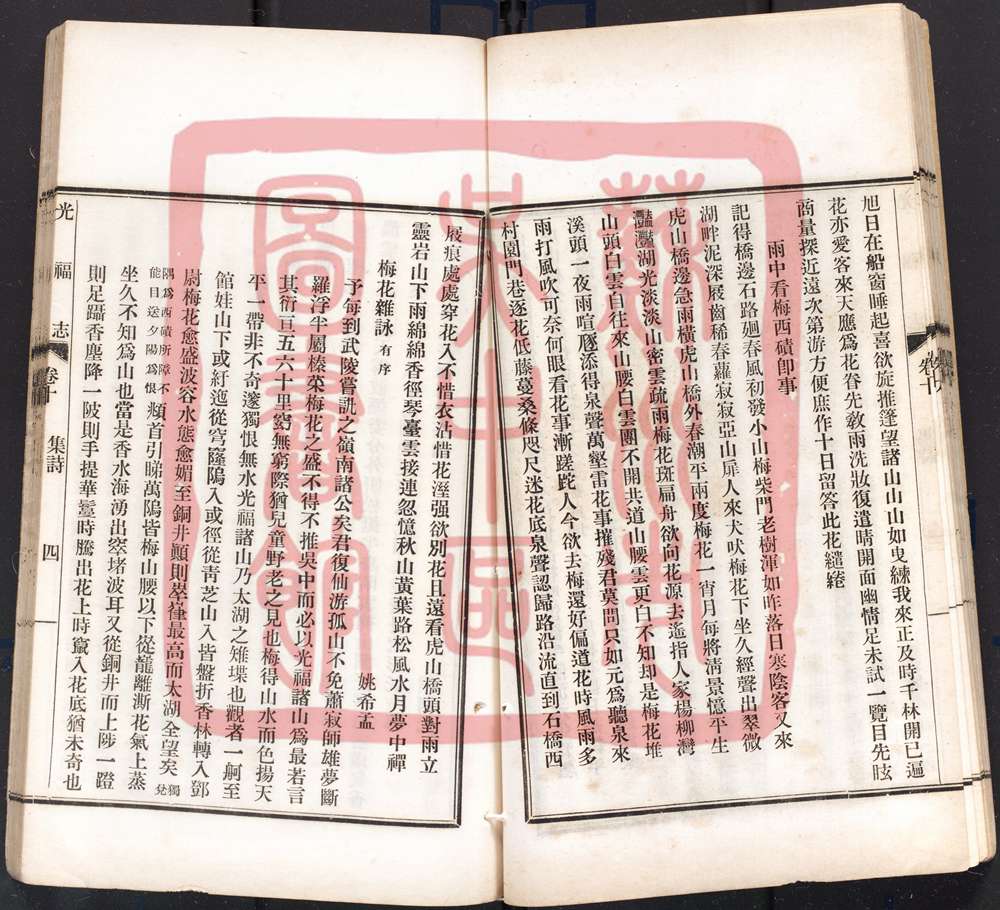 旭日在船窗睡起喜欲旋推篷望諸山山山如曳練我來正及時千林開已遍
花亦愛客來天應爲花眷先敎雨洗妝復遣晴開面幽情足未試一覽目先眩
商量探近遠次第游方便庶作十日留答此花繾綣
雨中看梅西磧卽事
記得橋邊石路廻春風初發小山梅柴門老樹渾如昨落日寒陰客又來
湖畔泥深屐齒稀春蘿寂寂亞山扉人來犬吠梅花下坐久經聲出翠微
虎山橋邊急雨橫虎山橋外春潮平兩度梅花一宵月每將淸景憶平生
灩灩湖光淡淡山密雲疏雨梅花斑扁舟欲向花源去遙指人家楊柳灣
山頭白雲自往來山腰白雲團不開共道山腰雲更白不知却是梅花堆
溪頭一夜雨喧豗添得泉聲萬壑雷花事摧殘君莫問只如元爲聽泉來
雨打風吹可奈何眼看花事漸蹉跎人今欲去梅還好偏道花時風雨多
村園門巷逐花低藤蔓桑條咫尺迷花底泉聲認歸路沿流直到石橋西
卷十
屐痕處處穿花入不惜衣沾惜花溼强欲別花且遠看虎山橋頭對雨立
靈岩山下雨綿綿香徑琴臺雲接連忽憶秋山黃葉路松風水月夢中禪
梅花雜詠 有序
姚希孟
予每到武陵嘗訊之嶺南諸公矣君復仙游孤山不免蕭寂師雄夢斷
羅浮半屬榛萊梅花之盛不得不推吳中而必以光福諸山爲最若言
其衍亘五六十里窈無窮際猶兒童野老之見也梅得山水而色揚天
平一帶非不奇邃獨恨無水光福諸山乃太湖之雉堞也觀者一舸至
館娃山下或紆迤從穹窿隖入或徑從靑芝山入皆盤折香林轉入鄧
尉梅花愈盛波容水態愈媚至銅井顚則崒嵂最高而太湖全望矣 獨兌
隅爲西磧所障不能目送夕陽爲恨 頫首引睇萬隖皆梅山腰以下從籠離澌花氣上蒸
坐久不知爲山也當是香水海湧出窣堵波耳又從銅井而上陟一蹬
則足躡香塵降一陂則手提華鬘時騰出花上時竄入花底猶未奇也
光福志
卷十
集詩
四